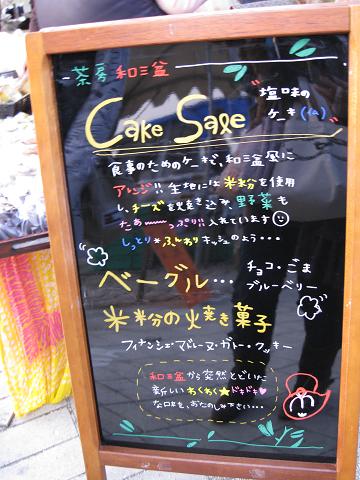 茶房 和三盆
Cake Saxe
"塩味の
ケーキ(仏)"
食事のためのケーキで、和三盆風に
アレンジ!! 生地には米粉を使用
し、チーズを焼き込み、野菜も
たぁ〜〜っぷり!! 入れています☺
しっとり*ふんわり キッシュのよう・・・
ベーグル・・・
チョコ・ごま
ブルーベリー
米粉の焼き菓子
フィナンシェ・マドレーヌ・ガトー・クッキー
和三盆から突然とどいた
新しいわくわく★ドキドキ♥
なお味を、おたのしみ下さい・・・